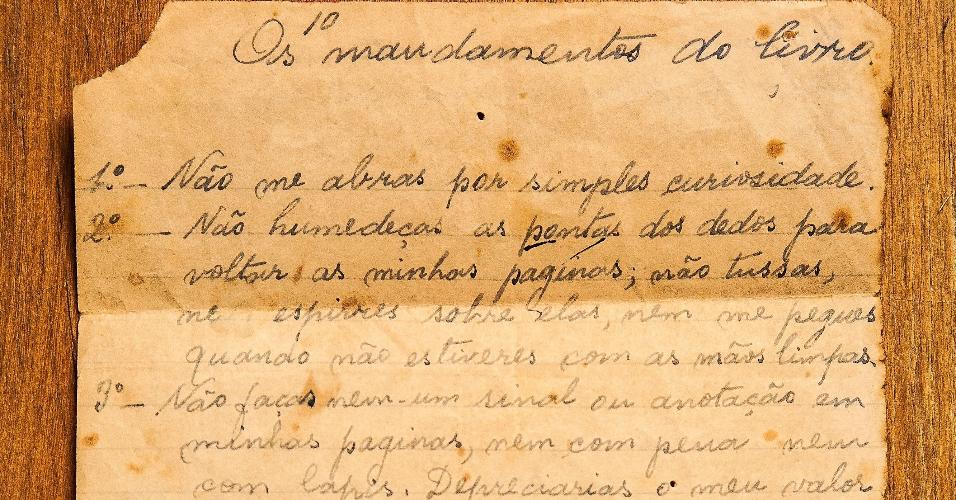 Os 10 mandamentos do livro.
1.º — Não me abras por simples curiosidade.
2º — Não humedeças as pontas dos dedos para
voltar as minhas paginas; não tussas,
ne espirres sobre elas, nem me pegues
quando não estiveres com as mãos limpas.
3º — Não faças nem-um sinal ou anotação em
minhas paginas, nem com pena nem
com lapis. Depreciarias o meu valor